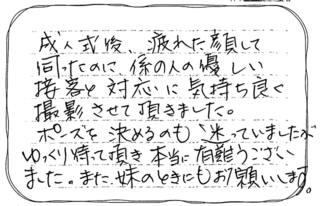 成人式後、疲れた顔して
伺ったのに係の人の優しい
接客と対応に気持ち良く
撮影させて頂きました。
ポーズを決めるのも迷っていましたが
ゆっくり待って頂き本当に有難うござい
ました。また妹のときにもお願いします。